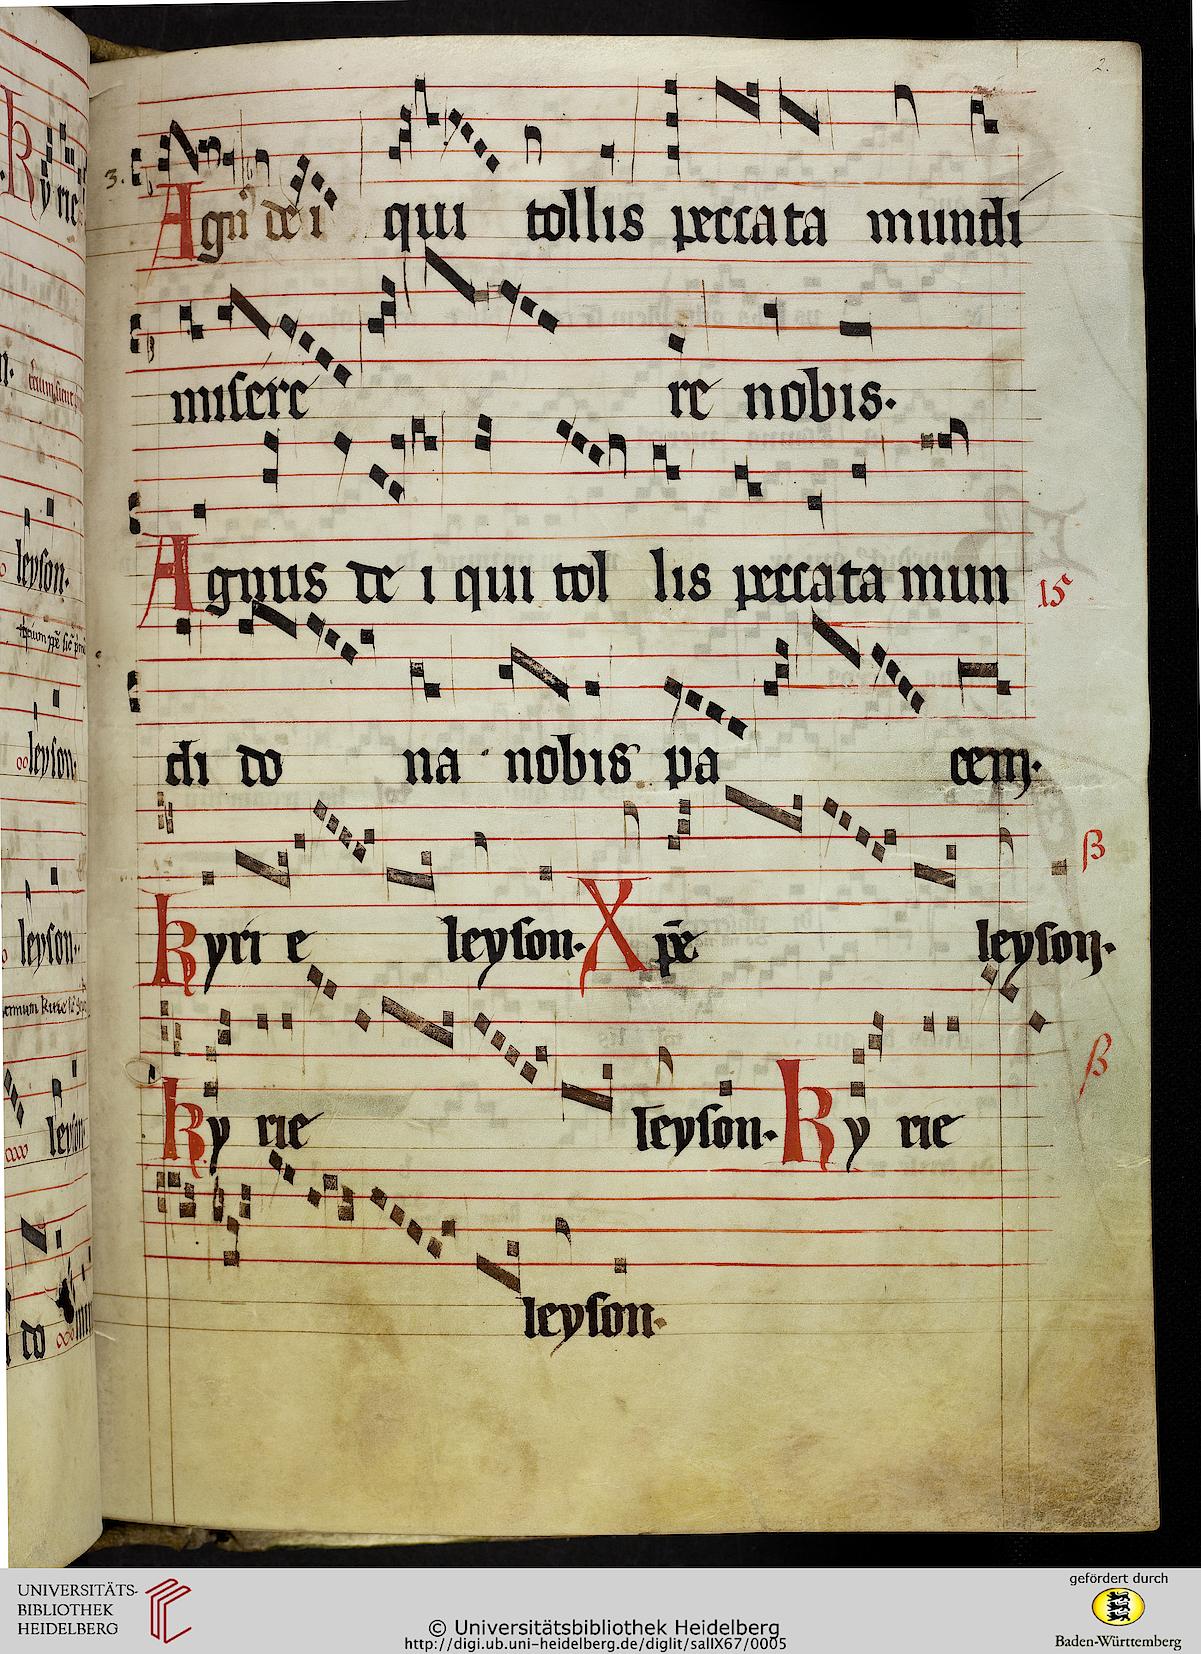 2.
3.
Agn̄ dei qui tollis peccata mundi
miſere re nobis.
Agnus de i qui tol lis peccata mun
di do na nobis pa cem.
Kyri e leyſon. Xpē leyſon.
Ky rie leyſon. Ky rie
leyſon.
Ky rie
leyſon.
leyſon.
leyſon.
ley
do
UNIVERSITÄTS-
BIBLIOTHEK
HEIDELBERG
© Universitätsbibliothek Heidelberg
http://digi.ub.uni-heidelberg.de/diglit/salIX67/0005
gefördert durch
Baden-Württemberg